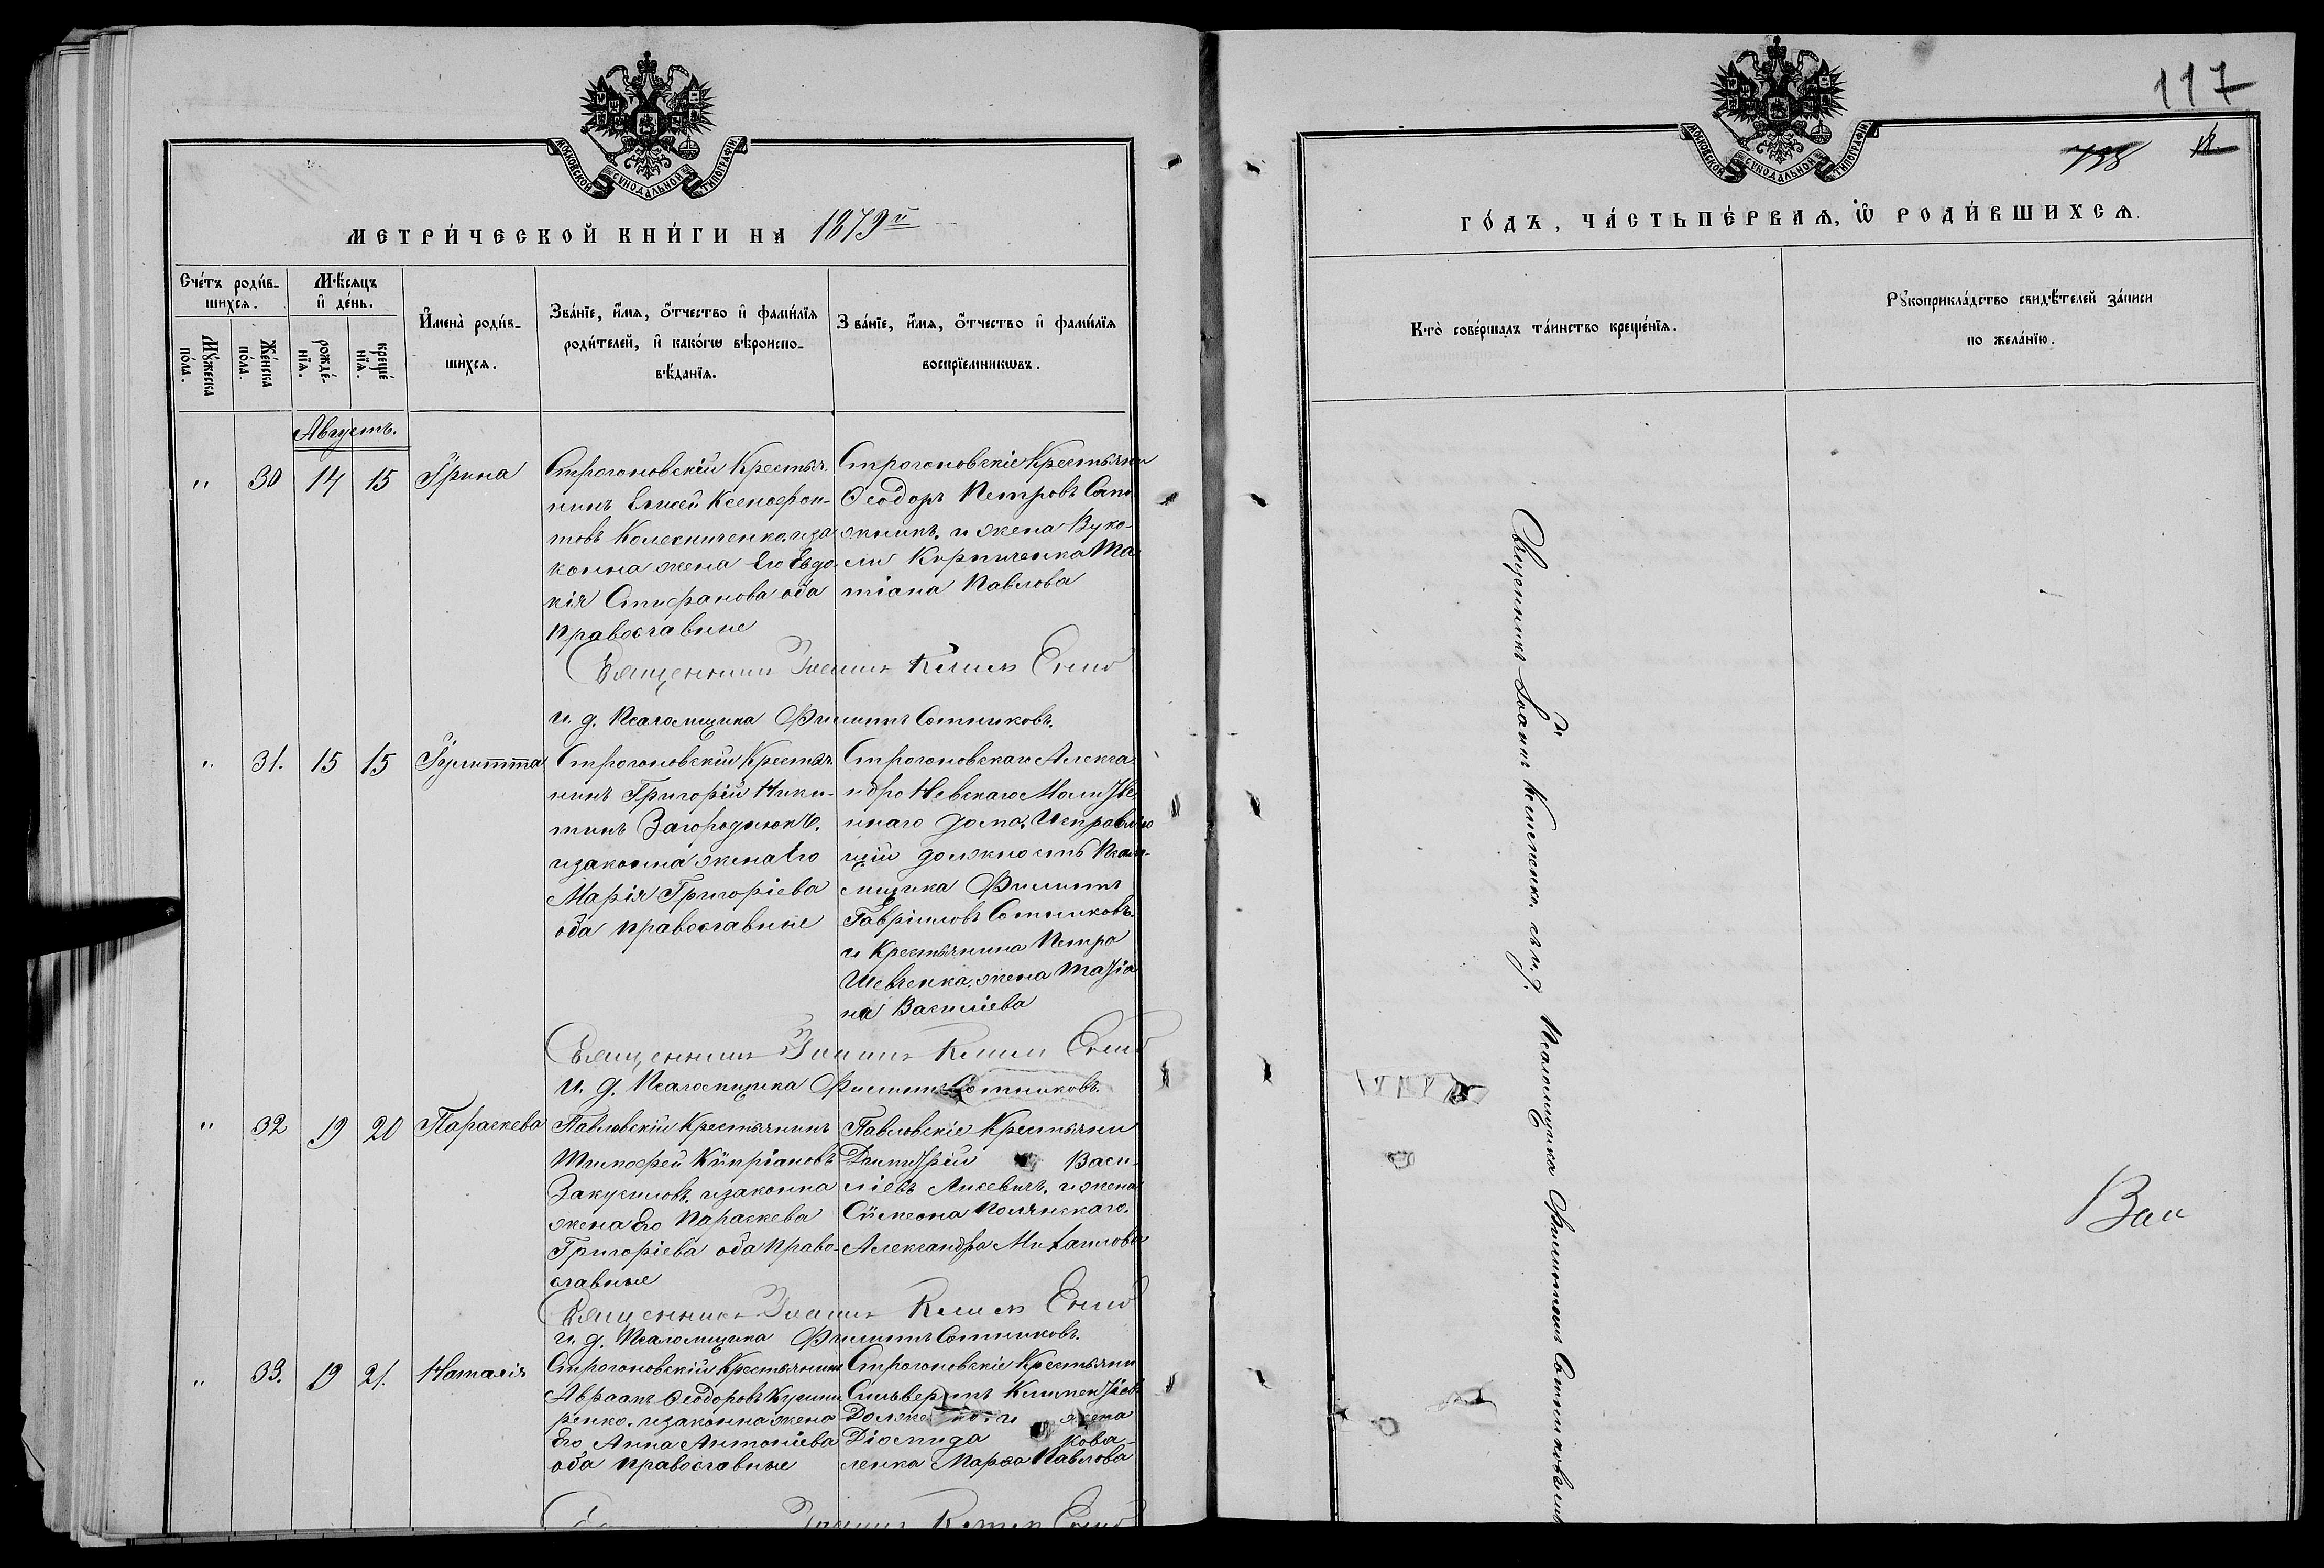 МОСКОВСКОЙ СѴНОДАЛЬНОЙ ТИПОГРАФІИ
МЕТРИ́ЧЕСКОЙ КНИ́ГИ НА 1879й
Сче́тъ роди́в-
шихся.
Мꙋ́жеска
по́ла.
Же́нска
по́ла.
Мѣ́сяцъ
и҆ де́нь.
рожде́-
нїя.
креще́
нїя.
И҆мена̀ роди́в-
шихся.
Зва́нїе, и҆́мя, ѻ҆́тчество и҆ фами́лїя
роди́телей, и҆ како́гѡ вѣроиспо-
вѣ́данїя.
Зва́нїе, и҆́мя, ѻ҆́тчество и҆ фами́лїя
воспрїе́мникѡвъ.
Августъ.
" 30 14 15 Ірина
Строгоновскій Крестья-
нинъ Елисей Ксенофон-
товъ Колесниченко, и за
конна жена Его Евдо-
кія Стефанова оба
православные
Строгоновскіе Крестьяни
Ѳеодоръ Петровъ Сапо
жникъ, и жена Вуко-
ли Кирпиченка Та
тіана Павлова
Священникъ Іоаннъ
И. д. Псаломщика Филиппъ Сотниковъ.
" 31. 15 15 Іулитта
Строгоновскій Крестья-
нинъ Григорій Ники-
тинъ Загороднюкъ,
и законна жена Его
Марія Григоріева
оба православные
Строгоновскаго Алекса
ндро Невскаго Молитве
ннаго дома, Исправляю
щій должность Псало-
мщика Филиппъ
Гавріиловъ Сотниковъ,
и Крестьянина Петра
Шевченка, жена Татіа
на Василіева
Священникъ Іоаннъ
И. д. Псаломщика Филиппъ Сотниковъ.
" 32 19 20 Параскева
Павловскій Крестьянинъ
Тимофей Кипріановъ
и законна
жена Его Параскева
Григоріева оба право-
славные
Павловскіе Крестьяни
Димитрій Васи-
ліевъ и жена
Сѵмеона Полянскаго,
Александра Михаилова
Священникъ Іоаннъ
И. д. Псаломщика Филиппъ Сотниковъ.
" 33. 19 21. Наталія
Строгоновскій Крестьянинъ
Авраамъ Ѳеодоровъ
и законна жена
Его Анна Антоніева
оба православные
Строгоновскіе Крестьяни
Сильверстъ
и жена
Діомида Кова-
ленка Марѳа Павлова
Іоаннъ
117
788 18.
МОСКОВСКОЙ СѴНОДАЛЬНОЙ ТИПОГРАФІИ
ГО́ДЪ, ЧА́СТЬ ПЕ́РВАЯ, Ѡ҆ РОДИ́ВШИХСЯ.
Кто̀ соверша́лъ та́инство креще́нїя.
Рꙋкоприкла́дство свидѣ́телей за́писи
по жела́нїю.
Священникъ Іоаннъ съ и. д. Псаломщика Филиппомъ Сотниковымъ